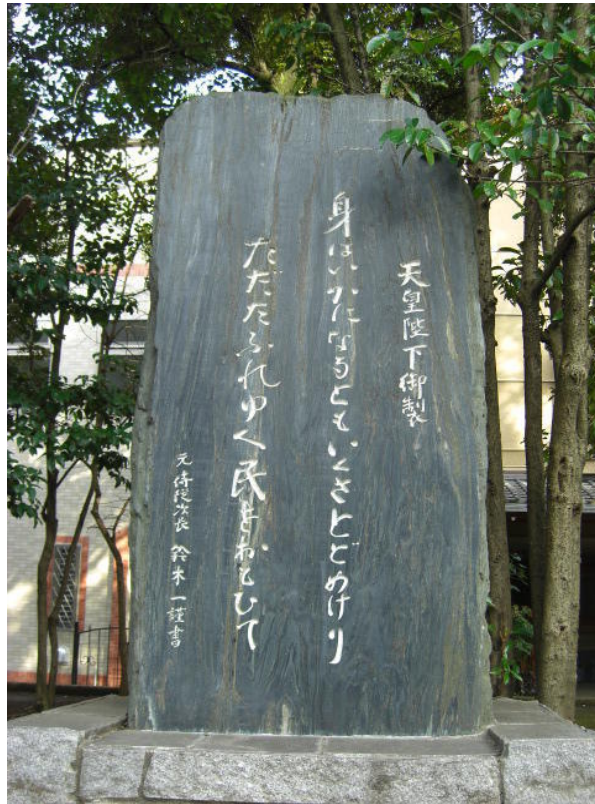 天皇陛下御製
身はいかになるともいくさとどめけり
ただたふれゆく民をおもひて
元侍従次長 鈴木一謹書